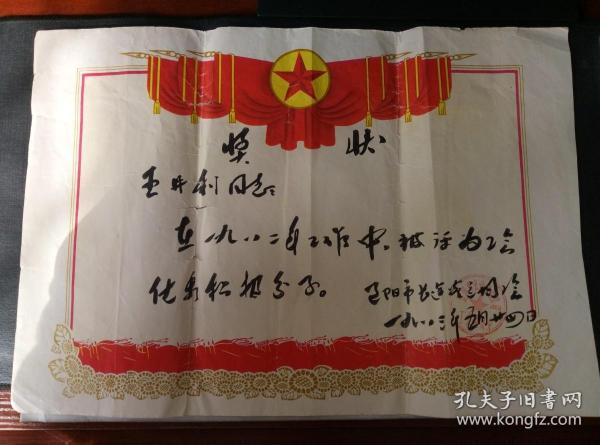 奖状
王井利同志:
在一九八二年工作中,被评为工会
优秀积极分子。
阳市长途
一九八三年五月廿四日
孔夫子旧书网
www.kongfz.com